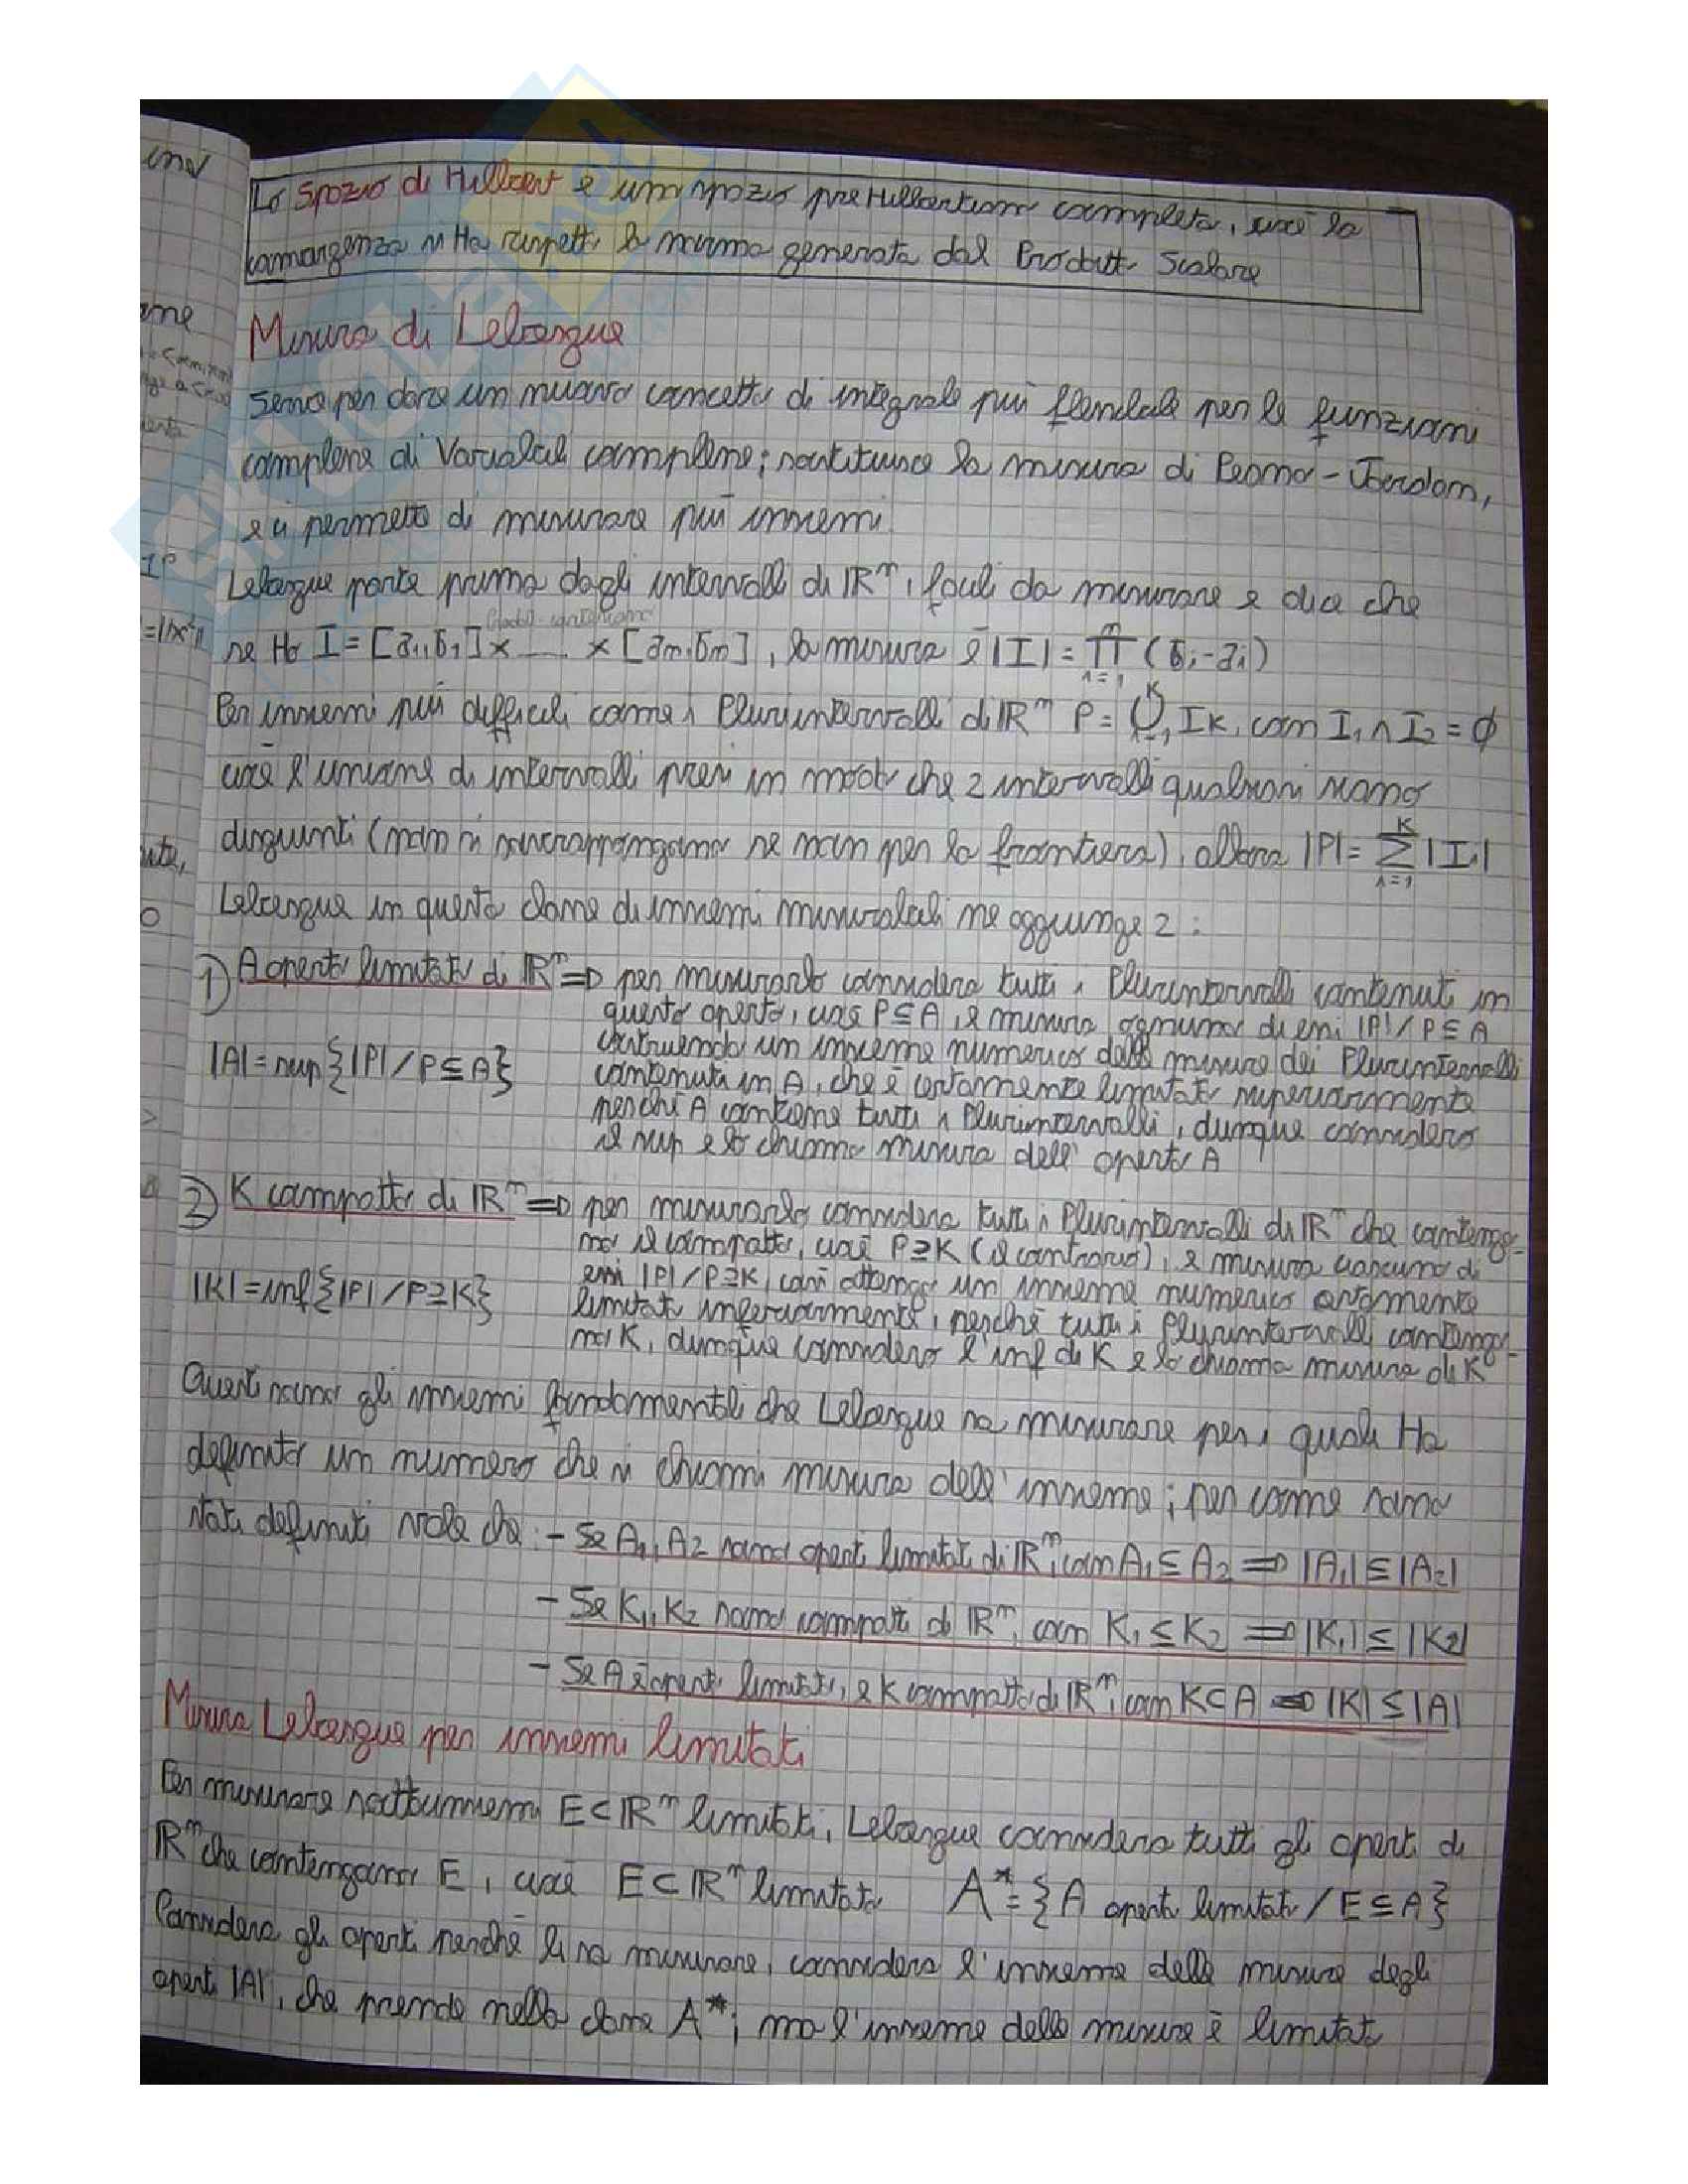 Lo Spazio di Hilbert è un spazio preHilbertiano completo, cioè la
convergenza si Ha rispetto la norma generata dal Prodotto Scalare
Misura di Lebesgue
Serve per dare un nuovo concetto di integrale più flessibile per le funzioni
complesse di Variabile complesse; sostituisce la misura di Peano-Jordan,
e ci permette di misurare più insiemi
Lebesgue parte prima dagli intervalli di ℝⁿ, facili da misurare e dice che
se Ho I = [a₁,b₁] x ..... x [aₙ,bₙ], la misura è |I| = ∏ᵢ₌₁ⁿ (bᵢ-aᵢ)
Per insiemi più difficili come i Plurintervalli di ℝⁿ P = ⋃ᵢ₌₁ᴷ Iₖ, con I₁ ∩ I₂ = ∅
cioè l'unione di intervalli presi in modo che 2 intervalli qualsiasi siano
disgiunti (non si sovrappongano se non per la frontiera), allora |P| = ∑ᵢ₌₁ᴷ |Iᵢ|
Lebesgue in questa classe di insiemi misurabili ne aggiunge 2:
1) A aperto limitato di ℝⁿ ⇒ per misurarlo considera tutti i Plurintervalli contenuti in
questo aperto, cioè P⊆A, e misura ognuno di essi |P| / P⊆A
costruendo un insieme numerico delle misure dei Plurintervalli
|A| = sup{|P| / P⊆A}
contenuti in A, che è certamente limitato superiormente
perché A contiene tutti i Plurintervalli, dunque considero
il sup e lo chiamo misura dell'aperto A
2) K compatto di ℝⁿ ⇒ per misurarlo considera tutti i Plurintervalli di ℝⁿ che contengo-
no il compatto, cioè P⊇K (il contrario), e misura ciascuno di
essi |P| / P⊇K, così ottengo un insieme numerico certamente
|K| = inf{|P| / P⊇K}
limitato inferiormente, perché tutti i Plurintervalli contengo-
no K, dunque considero l'inf di K e lo chiamo misura di K
Questi sono gli insiemi fondamentali che Lebesgue sa misurare per i quali Ha
definito un numero che si chiami misura dell'insieme; per come sono
stati definiti vale che: - Se A₁, A₂ sono aperti limitati di ℝⁿ, con A₁⊆A₂ ⇒ |A₁| ≤ |A₂|
- Se K₁, K₂ sono compatti di ℝⁿ, con K₁ ⊆ K₂ ⇒ |K₁| ≤ |K₂|
- Se A è aperto limitato, e K compatto di ℝⁿ, con K⊂A ⇒ |K| ≤ |A|
Misura Lebesgue per insiemi limitati
Per misurare sottoinsiemi E⊂ℝⁿ limitati, Lebesgue considera tutti gli aperti di
ℝⁿ che contengano E, cioè E⊂ℝⁿ limitato A* = {A aperto limitato / E⊆A}
Considera gli aperti perché li sa misurare, considera l'insieme delle misure degli
aperti |A|, che prende nella classe A*; ma l'insieme delle misure è limitato